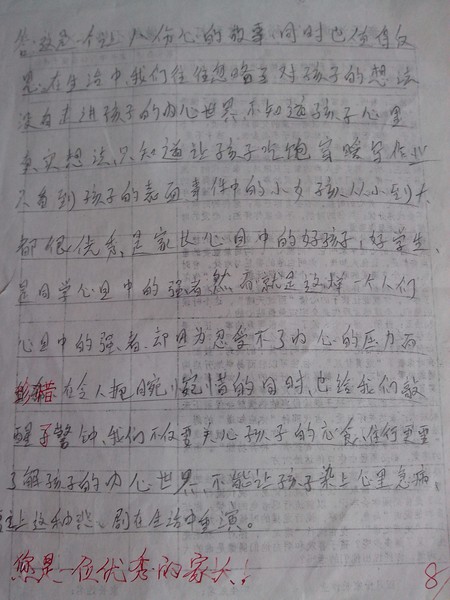 答:这是一个让人伤心的故事,同时也值得反
思。在生活中,我们往往忽略了对孩子的想法
没有走进孩子的内心世界,不知道孩子心里
真实想法,只知道让孩子吃饱穿暖写作业
只看到孩子的表面事件中的小女孩,从小到大
都很优秀,是家长心目中的好孩子,好学生、
是同学心目中的强者,然而就是这样一个人们
心目中的强者,却因为忍受不了内心的压力而
在令人扼腕惋惜的同时,也给我们敲
醒了警钟,我们不仅要关心孩子的衣食住行更要
了解孩子的内心世界,不能让孩子染上心里急病,
让这种悲剧在生活中重演。
您是一位优秀的家长!
8/